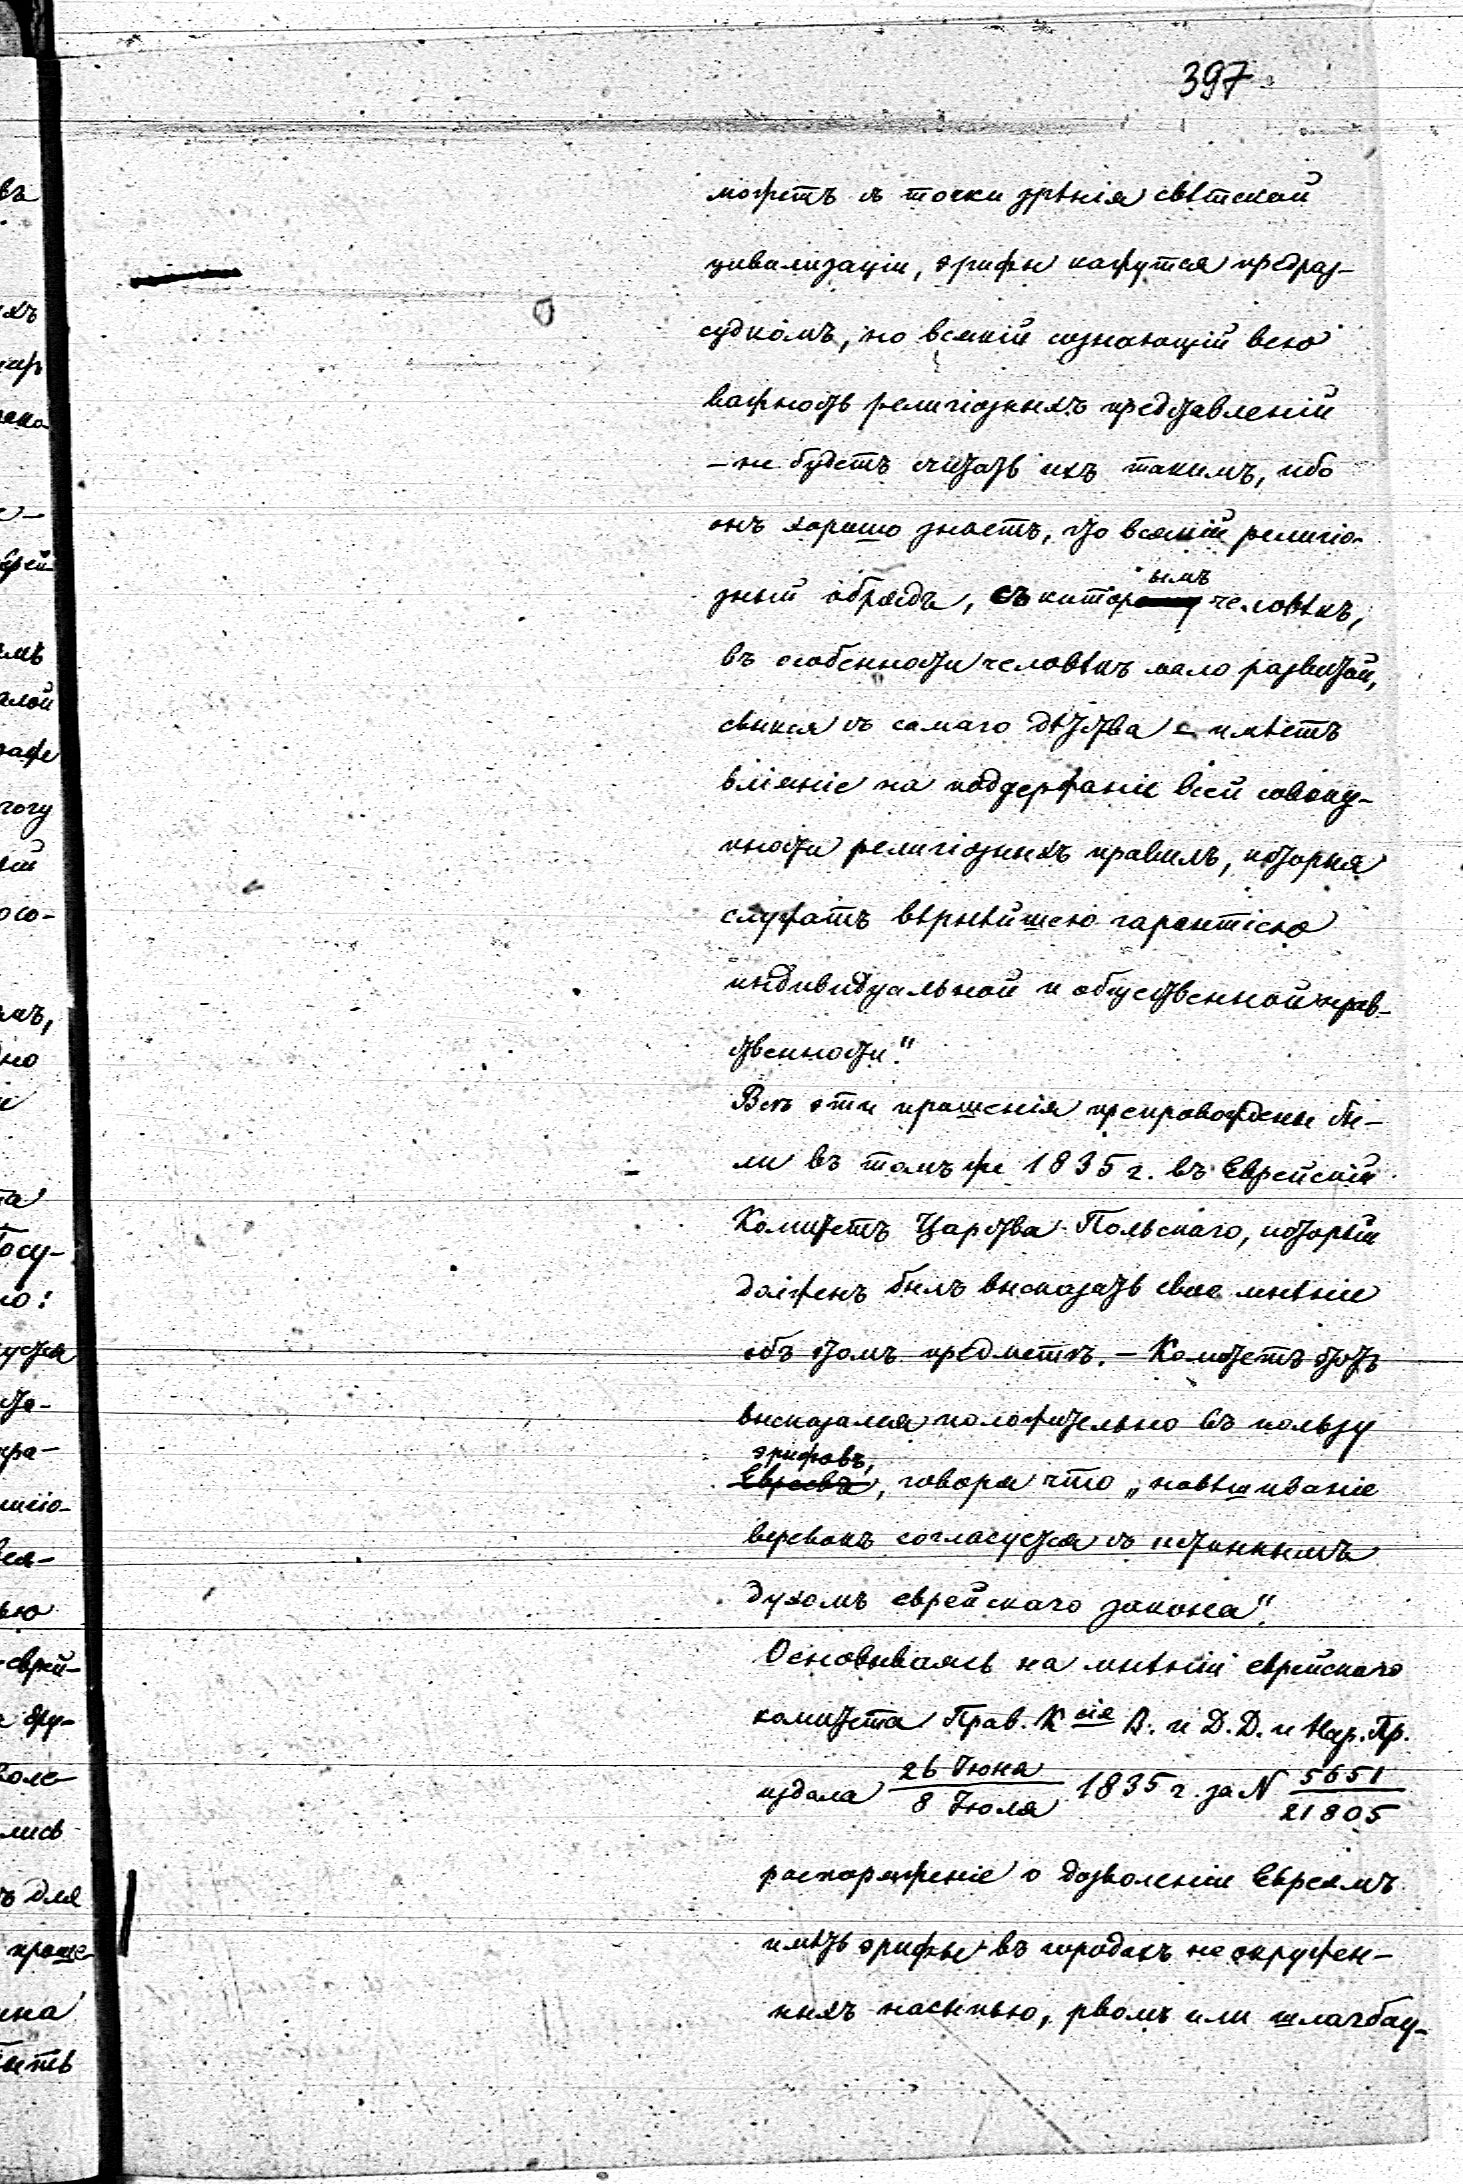 397
можетъ съ точки зрѣнія свѣтской
цивилизаціи, эрифы кажутся предраз-
судкомъ, но всякій сознающій всю
важность религіозныхъ представленій
– не будетъ считать ихъ такимъ, ибо
онъ хорошо знаетъ, что всякій религіо-
зный обрядъ, съ которымъ человѣкъ,
въ особенности человѣкъ мало развитой,
свыкся съ самаго дѣтства – имѣетъ
вліяніе на поддержаніе всей совоку-
пности религіозныхъ правилъ, которыя
служатъ вѣрнѣйшею гарантіею
индивидуальной и общественной нрав-
ственности."
Всѣ эти прошенія препровождены бы-
ли въ томъ же 1835 г. въ Еврейскій
Комитетъ Царства Польскаго, который
долженъ былъ высказать свое мнѣніе
объ этомъ предметѣ. – Комитетъ этотъ
высказался положительно въ пользу
эрифовъ,
Евреевъ, говоря что „навѣшиваніе
веревокъ согласуется съ истиннымъ
духомъ еврейскаго закона".
Основываясь на мнѣніи еврейскаго
комитета Прав. К сія В. и Д. Д. и Нар. Пр.
издала 26 Іюня / 8 Іюля 1835 г. за N 5651 / 21805
распоряженіе о дозволеніи Евреямъ
имѣть эрифы въ городахъ не окружен-
ныхъ насыпью, рвомъ или шлагбау-